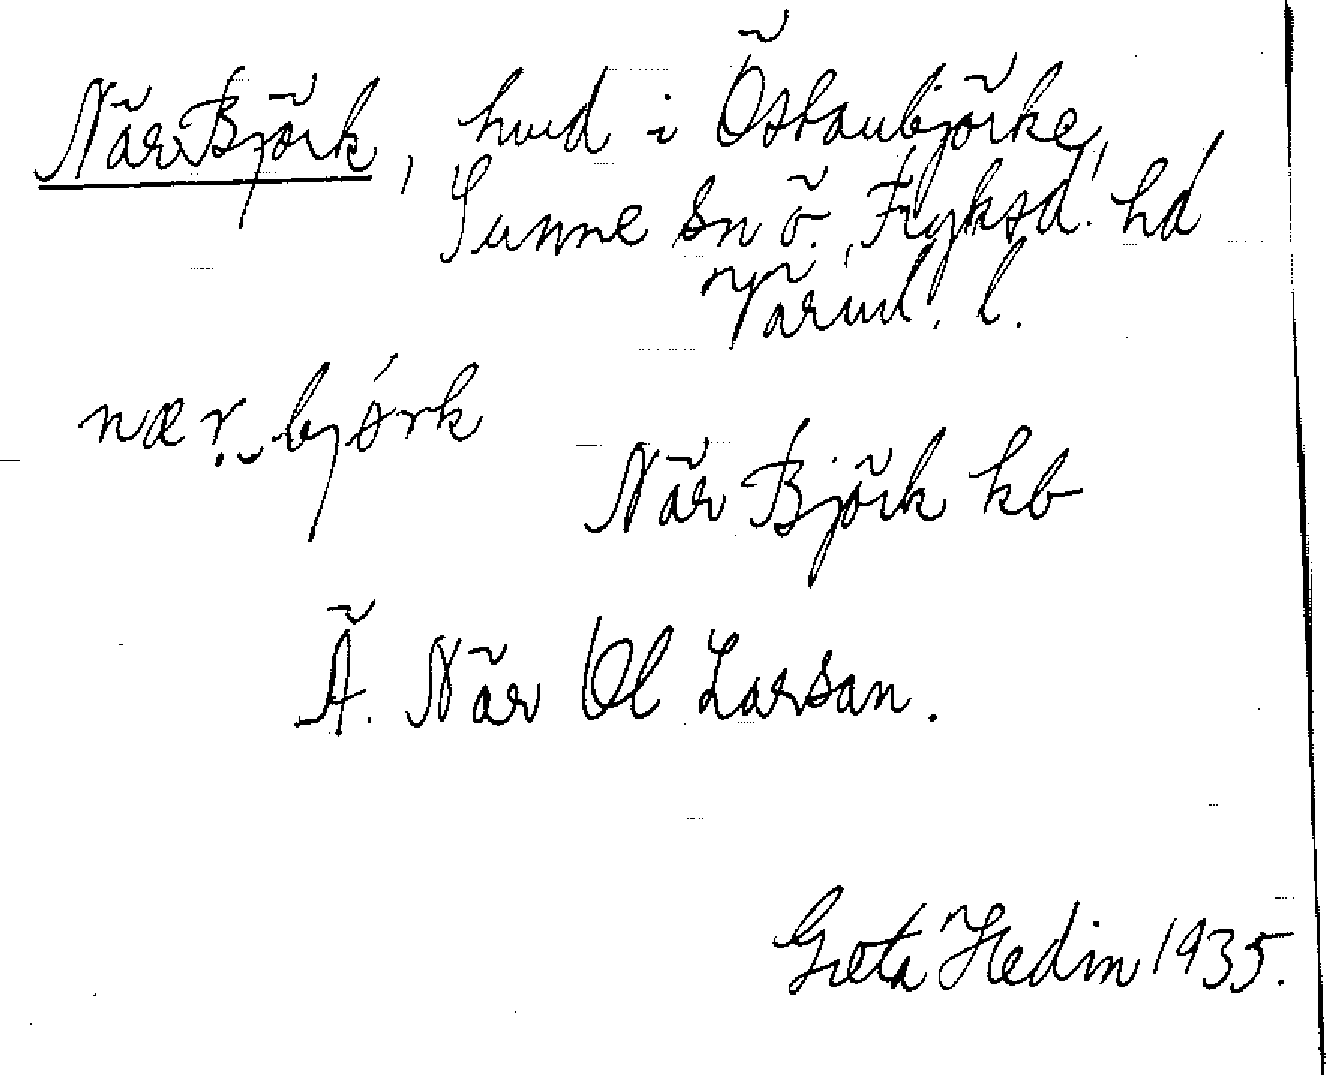 När Björk, hmd i Östanbjörke,
Sunne sn ö. Fryksd. hd
Värml. l.
nær. björk
När Björk kb
Ä. När Ol Larsan.
Greta Hedin 1935.